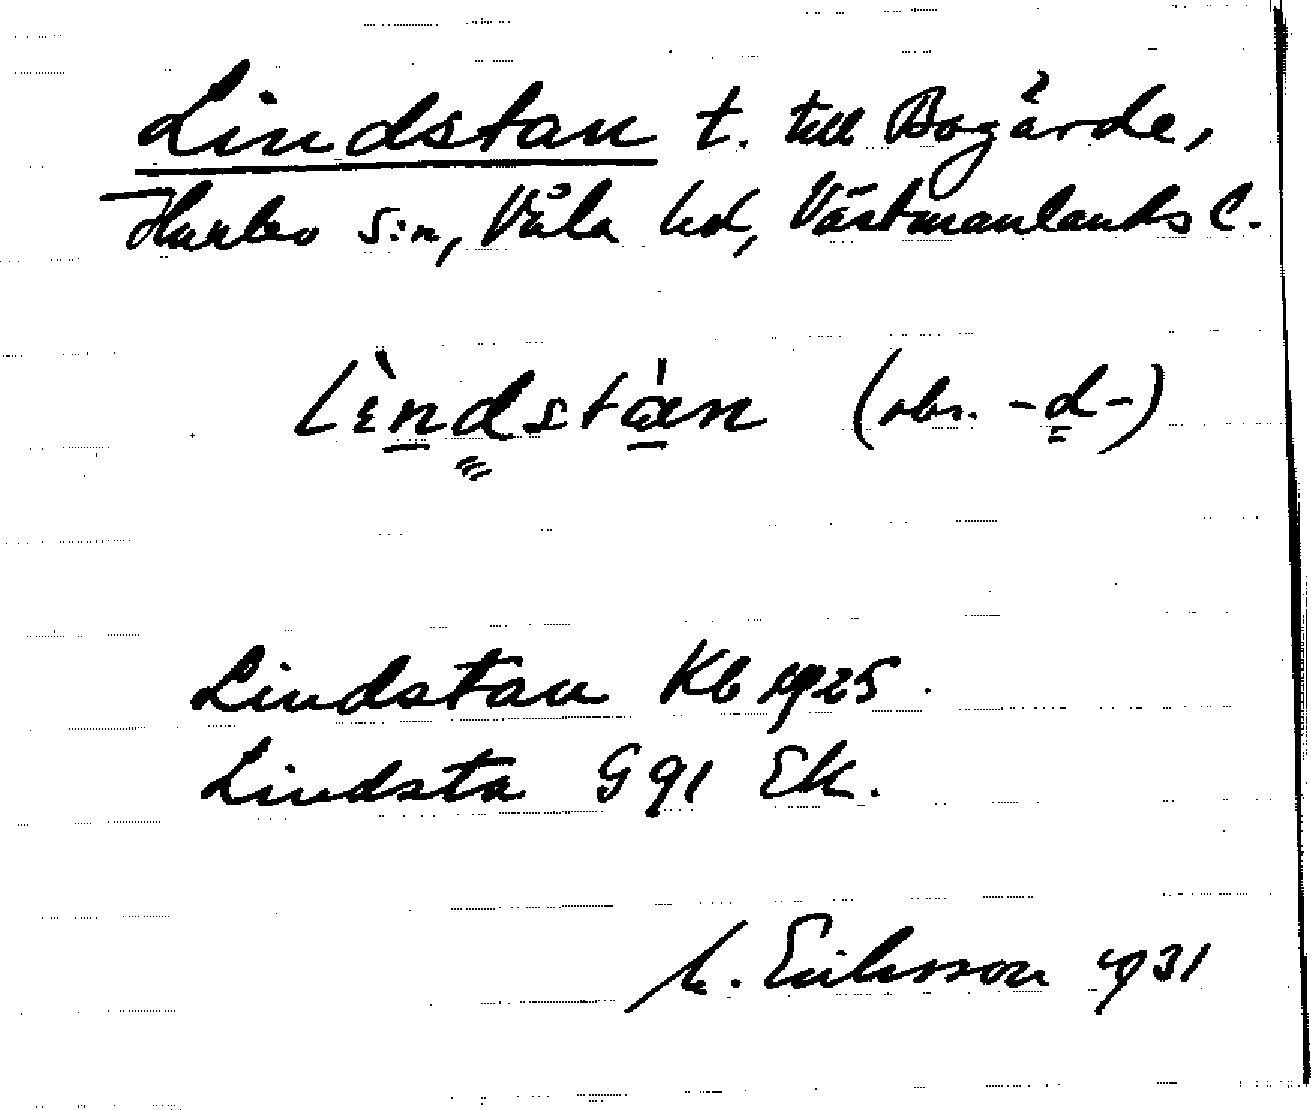 Lindstan t. till Bogärde,
Harbo s:n, Våla hd, Västmanlands l.
Lèndstàn (obs. -d-)
Lindstan Kb 1925.
Lindsta G 91 Ek.
M. Eriksson 1931